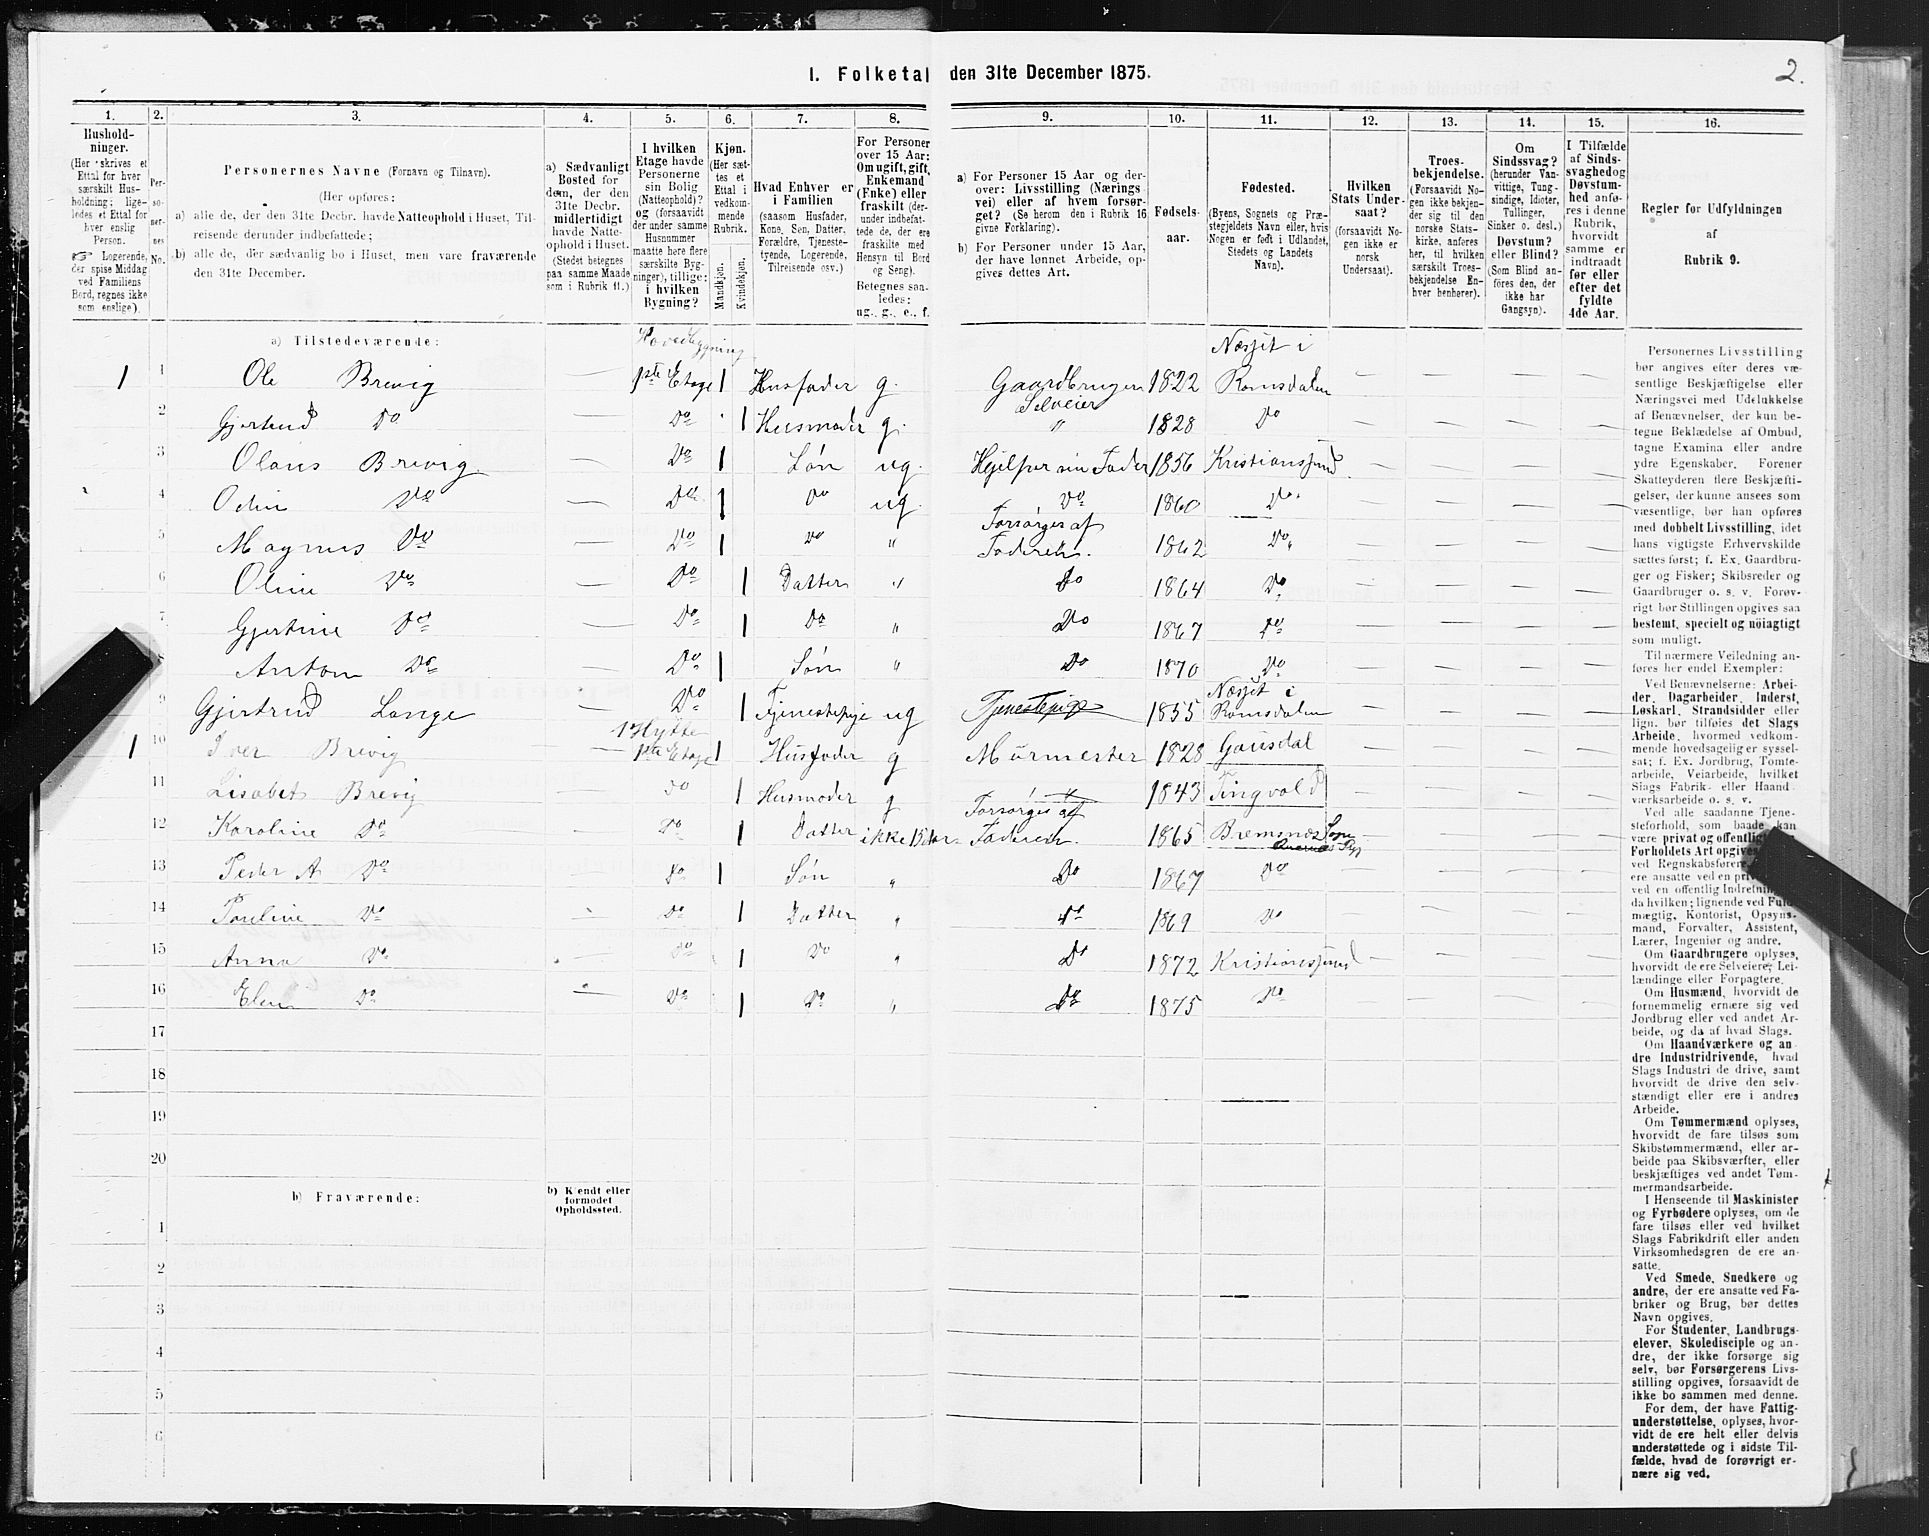 I. Folketal den 31te December 1875.
2.
1. 2. 3. 4. 5. 6. 7. 8. 9. 10. 11. 12. 13. 14. 15. 16.
Hushold-
ninger.
(Her skrives et
Ettal for hver
særskilt Hus-
holdning; lige-
ledes et Ettal for
hver enslig
Person.
☞ Logerende,
der spise Middag
ved Familiens
Bord, regnes ikke
som enslige).
Per-
so-
ner-
nes
No.
Personernes Navne (Fornavn og Tilnavn).
(Her opføres:
a) alle de, der den 31te Decbr. havde Natteophold i Huset, Til-
reisende derunder indbefattede;
b) alle de, der sædvanlig bo i Huset, men vare fraværende
den 31te December.
a) Sædvanligt
Bosted for
dem, der den
31te Decbr.
midlertidigt
havde Natte-
ophold i Huset.
(Stedet betegnes
paa samme Maade
som i Rubrik 11.)
I hvilken
Etage havde
Personerne
sin Bolig
(Natteophold)?
og (forsaavidt
der under samme
Husnummer
maatte høre flere
særskilte Byg-
ninger), tillige:
i hvilken
Bygning?
Kjøn.
(Her sæt-
tes et
Ettal i
vedkom-
mende
Rubrik.
Mandkjøn.
Kvindekjøn.
Hvad Enhver er
i Familien
(saasom Husfader,
Kone, Søn, Datter,
Forældre, Tjeneste-
tyende, Logerende,
Tilreisende osv.)
For Personer
over 15 Aar:
Om ugift, gift,
Enkemand
(Enke) eller
fraskilt (der-
under indbefat-
tede de, der ere
fraskilte med
Hensyn til Bord
og Seng).
Betegnes saa-
ledes:
ug., g., e., f.
a) For Personer 15 Aar og der-
over: Livsstilling (Nærings-
vei) eller af hvem forsør-
get? (Se herom den i Rubrik 16
givne Forklaring).
b) For Personer under 15 Aar,
der have lønnet Arbeide, op-
gives dettes Art.
Fødsels-
aar.
Fødested.
(Byens, Sognets og Præ-
stegjeldets Navn eller, hvis
Nogen er født i Udlandet,
Stedets og Landets
Navn).
Hvilken
Stats Under-
saat?
(forsaavidt No-
gen ikke er
norsk
Undersaat).
Troes-
bekjendelse.
(Forsaavidt No-
gen ikke bekjen-
der sig til den
norske Stats-
kirke, anføres
her, til hvilken
særskilt Troes-
bekjendelse En-
hver henhører).
Om
Sindssvag?
(herunder Van-
vittige, Tung-
sindige, Idioter,
Tullinger,
Sinker o. desl.)
Døvstum?
eller Blind?
(Som Blind an-
føres den, der
ikke har
Gangsyn).
I Tilfælde
af Sinds-
svaghed og
Døvstum-
hed anfø-
res i denne
Rubrik,
hvorvidt
samme er
indtraadt
før eller
efter det
fyldte
4de Aar.
Regler for Udfyldningen
af
Rubrik 9.
a) Tilstedeværende:
Hovedbygning
Næsjet i
1 1 Ole Brevig — 1ste Etage 1 Husfader g. Gaardbruger 1822 Romsdalen — — — —
Selveier
2 Gjertrud Do — Do 1 Husmoder g. " 1828 Do — — — —
3 Olaus Brevig — Do 1 Søn ug. Hjelper sin Fader 1856 Kristianssund — — — —
4 Odin Do — Do 1 Do ug. Do 1860 Do — — — —
Forsørges af
5 Magnus Do — Do 1 Do " Faderen. 1862 Do — — — —
6 Oline Do — Do 1 Datter " Do 1864 Do — — — —
7 Gjertine Do — Do 1 Do " Do 1867 Do — — — —
8 Anton Do — Do 1 Søn " Do 1870 Do — — — —
Næsjet i
9 Gjertrud Lange — Do 1 Tjenestepige ug Tjenestepige 1855 Romsdalen — — — —
1 Hytte
1 10 Iver Brevig — 1ste Etage 1 Husfader g Murmester 1828 Gausdal — — — —
11 Lisabet Brevig — Do 1 Husmoder g " 1843 Tingvold — — — —
Forsørges af
12 Karoline Do — Do 1 Datter ikke 15 Aar Faderen. 1865 Bremsnes — — — —
13 Peder A Do — Do 1 Søn " Do 1867 Do — — — —
14 Pauline Do — Do 1 Datter " Do 1869 Do — — — —
15 Anna Do — Do 1 Do " Do 1872 Kristianssund — — — —
16 Elen Do — Do 1 Do " Do 1875 Do — — — —
17
18
19
20
b) Fraværende:
b) Kjendt eller
formodet
Opholdssted.
1
2
3
4
5
6
Personernes Livsstilling
bør angives efter deres væ-
sentlige Beskjæftigelse eller
Næringsvei med Udelukkelse
af Benævnelser, der kun be-
tegne Beklædelse af Ombud,
tagne Examina eller andre
ydre Egenskaber. Forener
Skatteyderen flere Beskjæfti-
gelser, der kunne ansees som
væsentlige, bør han opføres
med dobbelt Livsstilling, idet
hans vigtigste Erhvervskilde
sættes først; f. Ex. Gaardbru-
ger og Fisker; Skibsreder og
Gaardbruger o. s. v. Forøv-
rigt bør Stillingen opgives saa
bestemt, specielt og nöiagtigt
som muligt.
Til nærmere Veiledning an-
føres her endel Exempler:
Ved Benævnelserne: Arbei-
der, Dagarbeider, Inderst,
Løskarl, Strandsidder eller
lign. bør tilføies det Slags
Arbeide, hvormed vedkom-
mende hovedsagelig er syssel-
sat; f. Ex. Jordbrug, Tomte-
arbeide, Veiarbeide, hvilket
Slags Fabrik- eller Haand-
værksarbeide o. s. v.
Ved alle saadanne Tjene-
steforhold, som baade kan
være privat og offentlig
Forholdets Art opgives
ved Regnskabsførere,
ere ansatte ved en
ved en offentlig Indretning
da hvilken; lignende ved Fuld-
mægtig, Kontorist, Opsyns-
mand, Forvalter, Assistent,
Lærer, Ingeniør og andre.
Om Gaardbrugere oplyses,
hvorvidt de ere Selveiere, Lei-
lændinge eller Forpagtere.
Om Husmænd, hvorvidt de
fornemmelig ernære sig ved
Jordbrug eller ved andet Ar-
beide, og da af hvad Slags.
Om Haandværkere og an-
dre Industridrivende, hvad
Slags Industri de drive, samt
hvorvidt de drive den selv-
stændigt eller ere i andres
Arbeide.
Om Tømmermænd oplyses,
hvorvidt de fare tilsøs som
Skibstømmermænd, eller ar-
beide paa Skibsværfter, eller
beskjæftiges ved andet Tøm-
mermandsarbeide.
I Henseende til Maskinister
og Fyrbødere oplyses, om de
fare tilsøs eller ved hvilket
Slags Fabrikdrift eller anden
Virksomhedsgren de ere an-
satte.
Ved Smede, Snedkere og
andre, der ere ansatte ved Fa-
briker og Brug, bør dettes
Navn opgives.
For Studenter, Landbrugs-
elever, Skoledisciple og an-
dre, der ikke forsørge sig
selv, bør Forsørgerens Livs-
stilling opgives, forsaavidt de
ikke bo sammen med denne.
For dem, der have Fattig-
understøttelse, oplyses, hvor-
vidt de ere helt eller delvis
understøttede og i sidste Til-
fælde, hvad de forøvrigt er-
nære sig ved.